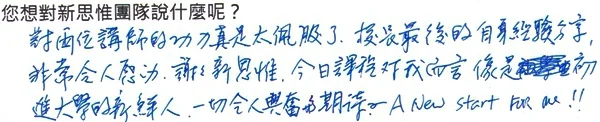 您想對新思惟團隊說什麼呢？
對兩位講師的功力真是太佩服了.校長最後的自身經驗分享,
非常令人感動.謝謝新思惟.今日課程对我而言像是初
進大學的新鮮人.一切令人興奮與期待~ A New start For me !!